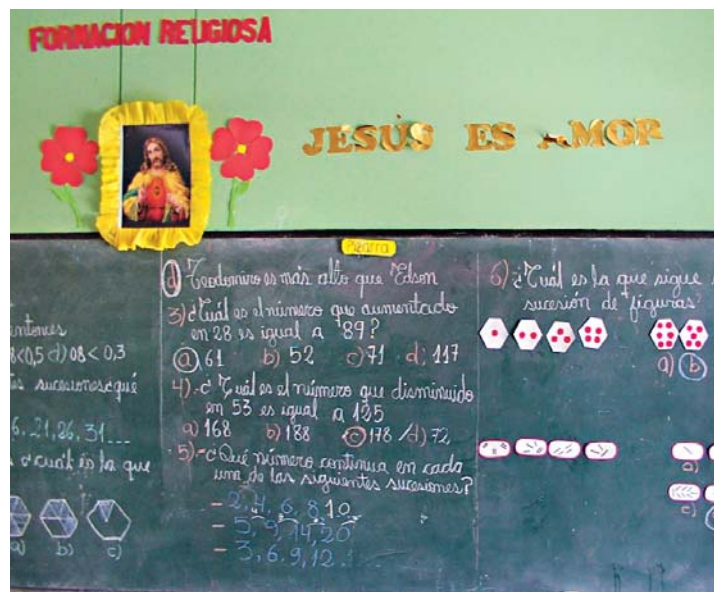 FORMACION RELIGIOSA
JESÚS ES AMOR
Pizarra
entonces
8<0,5 d) 08 < 0,3
sucesiones ¿qué
6, 21, 26, 31 ...
¿cuál es la que
a) b) c)
d) Teodomiro es más alto que Edson
3) ¿Cuál es el número que aumentado
en 28 es igual a 89?
a) 61 b) 52 c) 71 d) 117
4).- ¿Cuál es el número que disminuido
en 53 es igual a 125
a) 168 b) 188 c) 178 d) 72
5).- ¿Qué número continua en cada
una de las siguientes sucesiones?
- 2, 4, 6, 8 10
- 5, 9, 14, 20
- 3, 6, 9, 12
6) ¿Cuál es la que sigue
sucesión de figuras?
a) b)
a)
c)